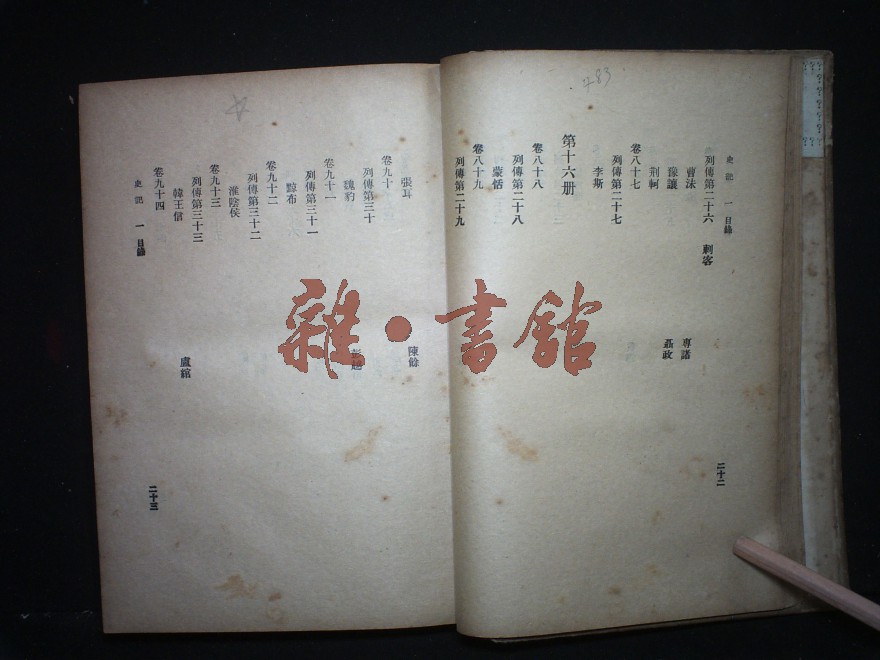 史記 一 目錄
列傳第二十六 刺客
曹沫 專諸
豫讓 聶政
荊軻
卷八十七
列傳第二十七
李斯
第十六册
卷八十八
列傳第二十八
蒙恬
卷八十九
列傳第二十九
二十二
783
張耳 陳餘
卷九十
列傳第三十
魏豹 彭越
卷九十一
列傳第三十一
黥布
卷九十二
列傳第三十二
淮陰侯
卷九十三
列傳第三十三
韓王信 盧綰
卷九十四
史記 一 目錄
二十三
雜·書館